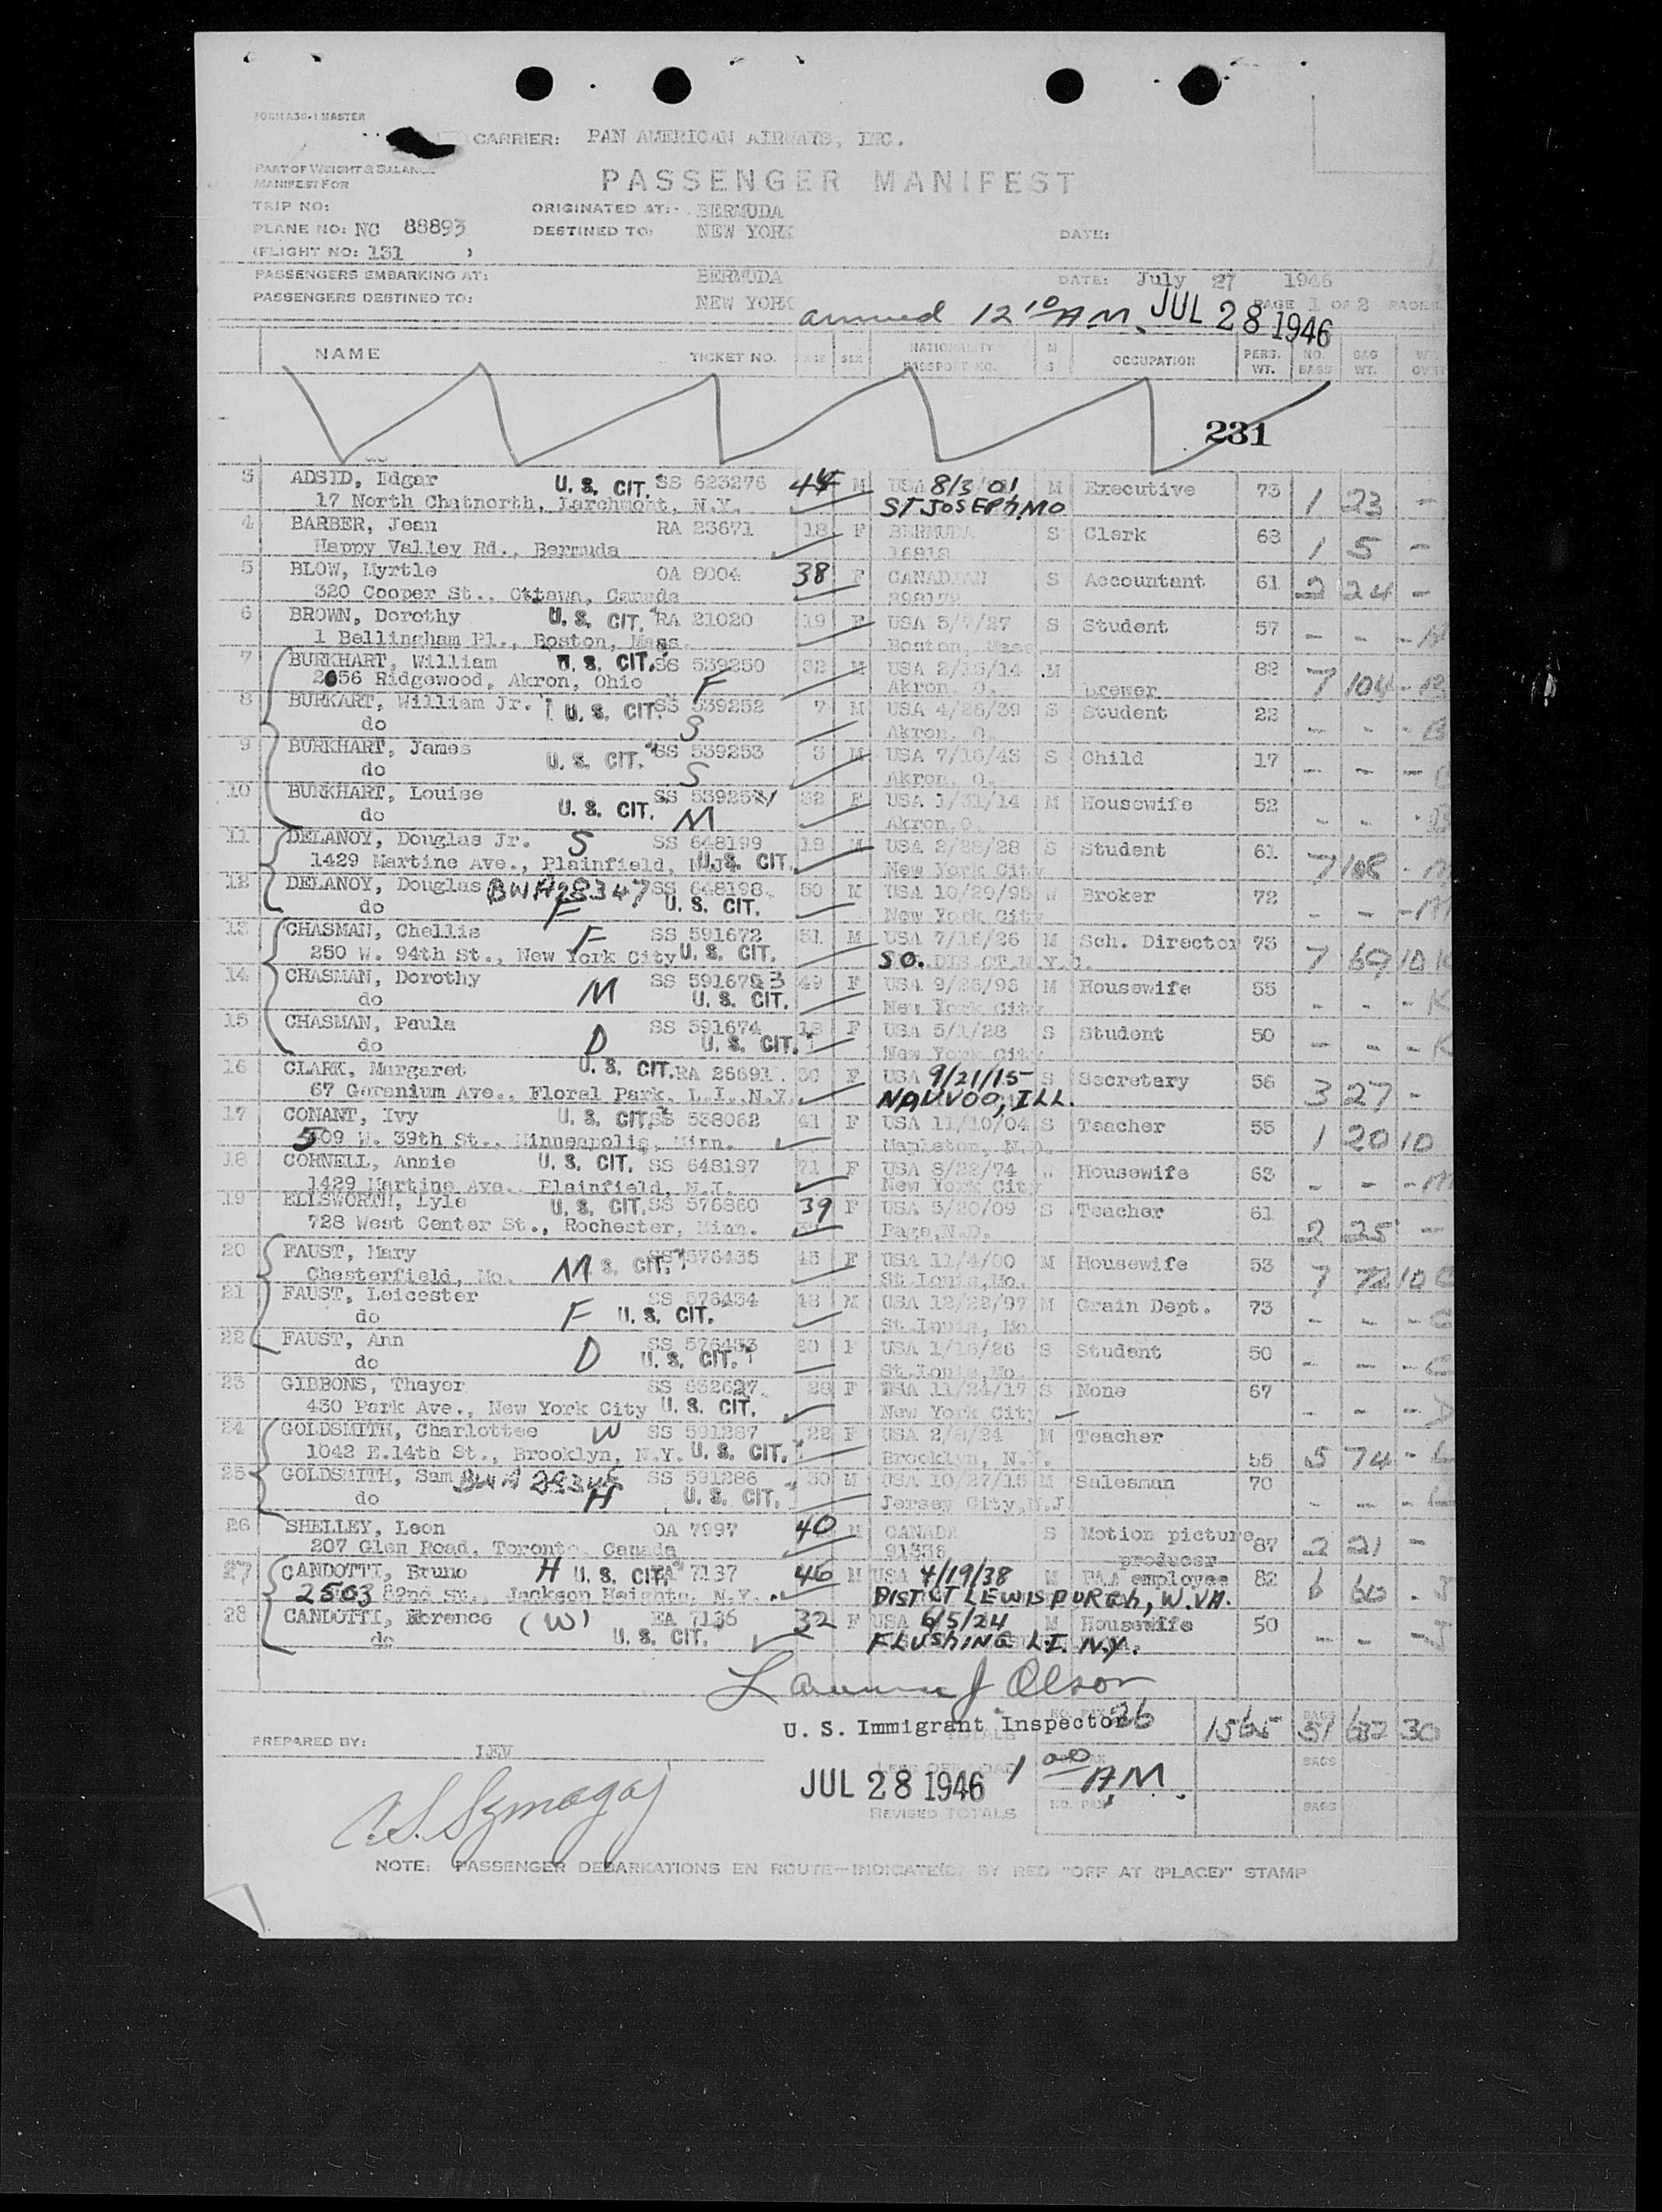 FORM A30-1 MASTER
CARRIER: PAN AMERICAN AIRWAYS, INC.
PART OF WEIGHT & BALANCE
MANIFEST FOR
PASSENGER MANIFEST
TRIP NO:
ORIGINATED AT: BERMUDA
PLANE NO: NC 88893
DESTINED TO: NEW YORK
DATE:
(FLIGHT NO: 131 )
PASSENGERS EMBARKING AT: BERMUDA DATE: July 27 1946
PASSENGERS DESTINED TO: NEW YORK PAGE 1 OF 2 PAGES
arrived 12 10 AM. JUL 28 1946
NAME TICKET NO. AGE SEX NATIONALITY PASSPORT NO. M S OCCUPATION PERS. WT. NO. BAGS BAG WT.
231
3 ADSID, Edgar U. S. CIT. SS 623276 44 M USA 8/3/01 M Executive 73 1 23 -
17 North Chatnorth, Larchmont, N.Y. ST JOSEPH, MO
4 BARBER, Jean RA 23671 18 F BERMUDA S Clerk 63 1 5 -
Happy Valley Rd., Bermuda 16818
5 BLOW, Myrtle OA 8004 38 F CANADIAN S Accountant 61 2 24 -
320 Cooper St., Ottawa, Canada
6 BROWN, Dorothy U. S. CIT. RA 21020 19 F USA 5/7/27 S Student 57 - - -
1 Bellingham Pl., Boston, Mass. Boston, Mass.
7 BURKHART, William U. S. CIT. SS 539250 32 M USA 2/13/14 M 82 7 104 -
2056 Ridgewood, Akron, Ohio F Akron, O. Brewer
8 BURKART, William Jr. U. S. CIT. SS 539252 7 M USA 4/26/39 S Student 22 - - -
do S Akron, O.
9 BURKHART, James U. S. CIT. SS 539253 3 M USA 7/16/43 S Child 17 - - -
do S Akron, O.
10 BURKHART, Louise SS 539251 32 F USA 1/31/14 M Housewife 52 - - -
do U. S. CIT. M Akron, O.
11 DELANOY, Douglas Jr. S SS 648199 18 M USA 2/28/28 S Student 61 7 108 -
1429 Martine Ave., Plainfield, N.J. U. S. CIT. New York City
12 DELANOY, Douglas BWA28347 SS 648198 50 M USA 10/29/95 W Broker 72 - - -
do F U. S. CIT. New York City
13 CHASMAN, Chellis F SS 591672 51 M USA 7/16/26 M Sch. Director 73 7 69 10
250 W. 94th St., New York City U. S. CIT. SO. DIS.CT.N.Y.C.
14 CHASMAN, Dorothy SS 591673 49 F USA 9/26/96 M Housewife 55 - - - K
do M U. S. CIT. New York City
15 CHASMAN, Paula SS 591674 18 F USA 5/1/28 S Student 50 - - - K
do D U. S. CIT. New York City
16 CLARK, Margaret U. S. CIT. RA 26691 30 F USA 9/21/15 S Secretary 56 3 27 -
67 Geranium Ave., Floral Park, L.I., N.Y. NAUVOO, ILL.
17 CONANT, Ivy U. S. CIT. SS 538062 41 F USA 11/10/04 S Teacher 55 1 20 10
509 W. 39th St., Minneapolis, Minn. Mapleton, N.D.
18 CORNELL, Annie U. S. CIT. SS 648197 71 F USA 8/22/74 Housewife 63 - - -
1429 Martine Ave., Plainfield, N.J. New York City
19 ELLSWORTH, Lyle U. S. CIT. SS 576860 39 F USA 5/20/09 S Teacher 61 2 25 -
728 West Center St., Rochester, Minn. Page, N.D.
20 FAUST, Mary SS 576435 45 F USA 11/4/00 M Housewife 53 7 72 10
Chesterfield, Mo. M S. CIT. St. Louis, Mo.
21 FAUST, Leicester SS 576434 48 M USA 12/22/97 M Grain Dept. 73 - - -
do F U. S. CIT. St. Louis, Mo.
22 FAUST, Ann SS 576433 20 F USA 1/16/26 S Student 50 - - -
do D U. S. CIT. St. Louis, Mo.
23 GIBBONS, Thayer SS 632627 28 F USA 11/24/17 S None 67 - - -
430 Park Ave., New York City U. S. CIT. New York City
24 GOLDSMITH, Charlottee W SS 591287 22 F USA 2/8/24 M Teacher 55 5 74 - L
1042 E.14th St., Brooklyn, N.Y. U. S. CIT. Brooklyn, N.Y.
25 GOLDSMITH, Sam SS 591286 30 M USA 10/27/15 M Salesman 70 - - - L
do H U. S. CIT. Jersey City, N.J.
26 SHELLEY, Leon OA 7997 40 M CANADA S Motion picture 87 2 21 -
207 Glen Road, Toronto, Canada 91336 producer
27 CANDOTTI, Bruno H U. S. CIT. EA 7137 46 M USA 4/19/38 M PAA employee 82 6 60 -
2503 82nd St., Jackson Heights, N.Y. DIST CT LEWISPURGH, W.VA.
28 CANDOTTI, Florence (W) EA 7136 32 F USA 6/5/24 M Housewife 50 - - -
do U. S. CIT. FLUSHING L.I. N.Y.
Lawrence J Olson
U. S. Immigrant Inspector
NO. PAX 26 1565 BAGS 51 632 30
TOTALS
PREPARED BY: LEV
JUL 28 1946 1 00 AM.
BAGS
REVISED TOTALS NO. PAX BAGS
NOTE: PASSENGER DEBARKATIONS EN ROUTE—INDICATED BY RED "OFF AT (PLACE)" STAMP